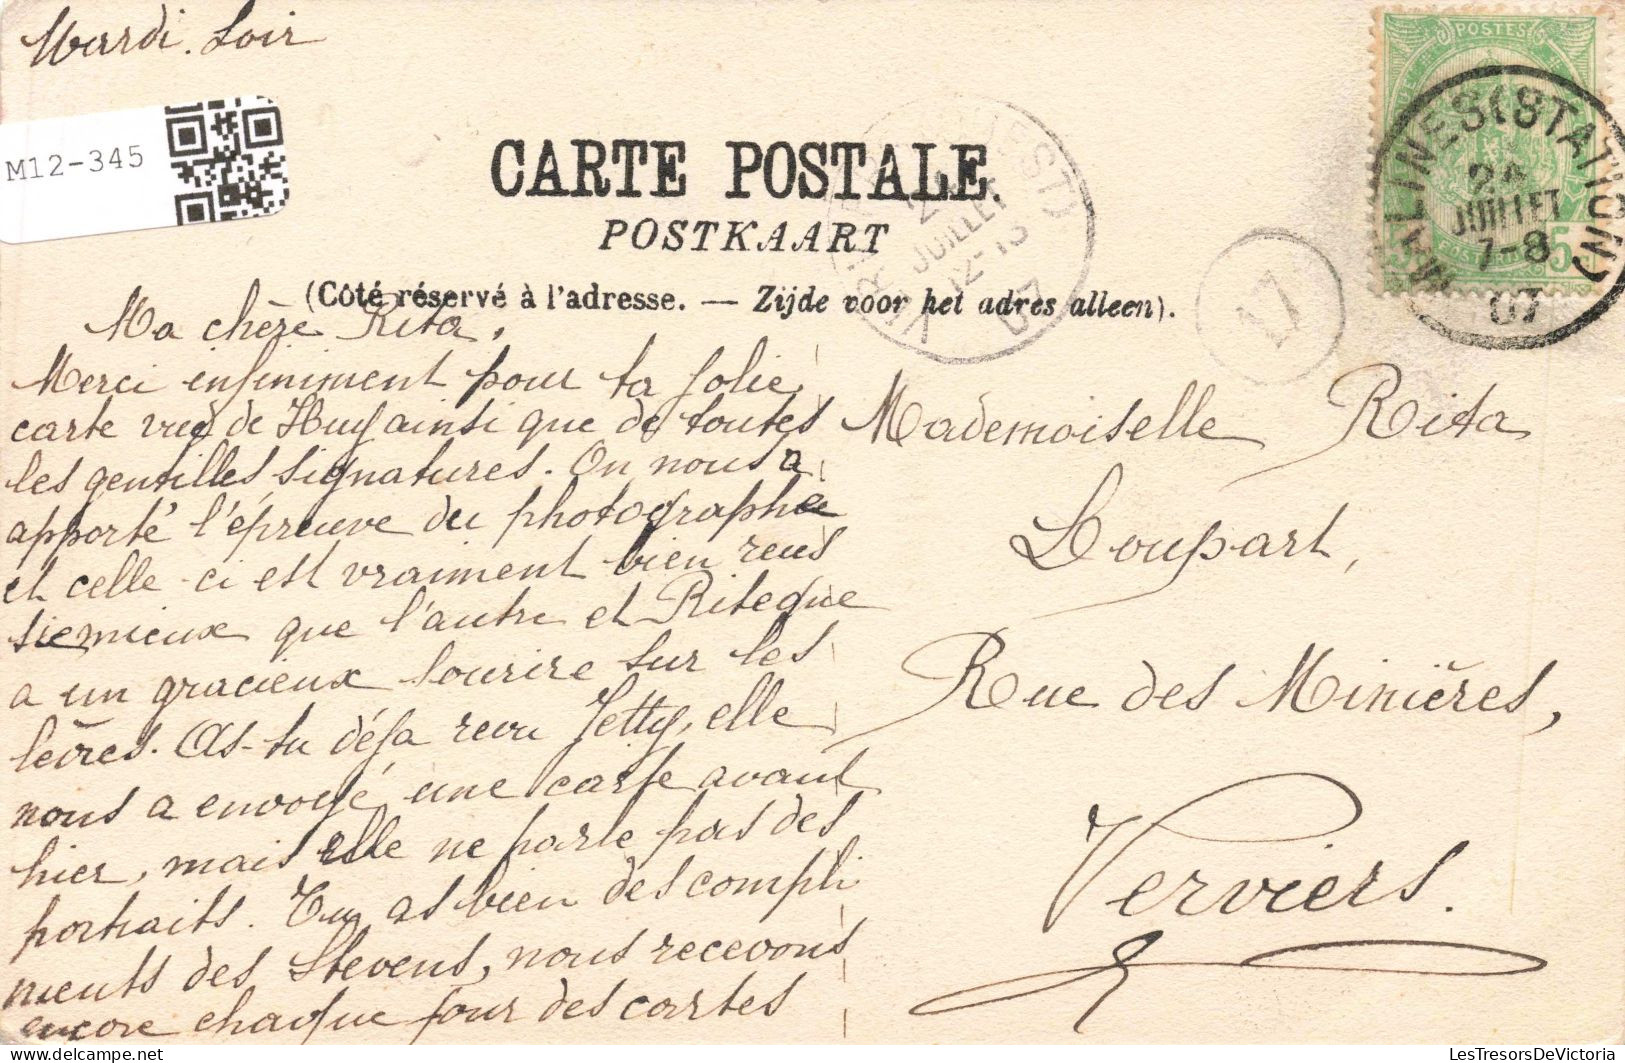 Mardi. Soir
M12-345
CARTE POSTALE.
POSTKAART
(Côté réservé à l'adresse. — Zijde voor het adres alleen).
POSTES
MALINES (STATION)
24
JUILLET
7-8
07
5
JUILLET
12-13
07
17
Ma chère Rita,
Merci infiniment pour ta jolie
carte vue de Huy ainsi que de toutes
les gentilles signatures. On nous a
apporté l'épreuve du photographe
et celle-ci est vraiment bien reus
sie mieux que l'autre et Rite que
a un gracieux sourire sur les
lèvres. As-tu déjà revu Jetty, elle
nous a envoyé une carte avant
hier, mais elle ne parle pas des
portraits. Tu as bien des compli
ments des Stevens, nous recevons
encore chaque jour des cartes
Mademoiselle Rita
Loupart,
Rue des Minières,
Verviers.
LesTresorsDeVictoria